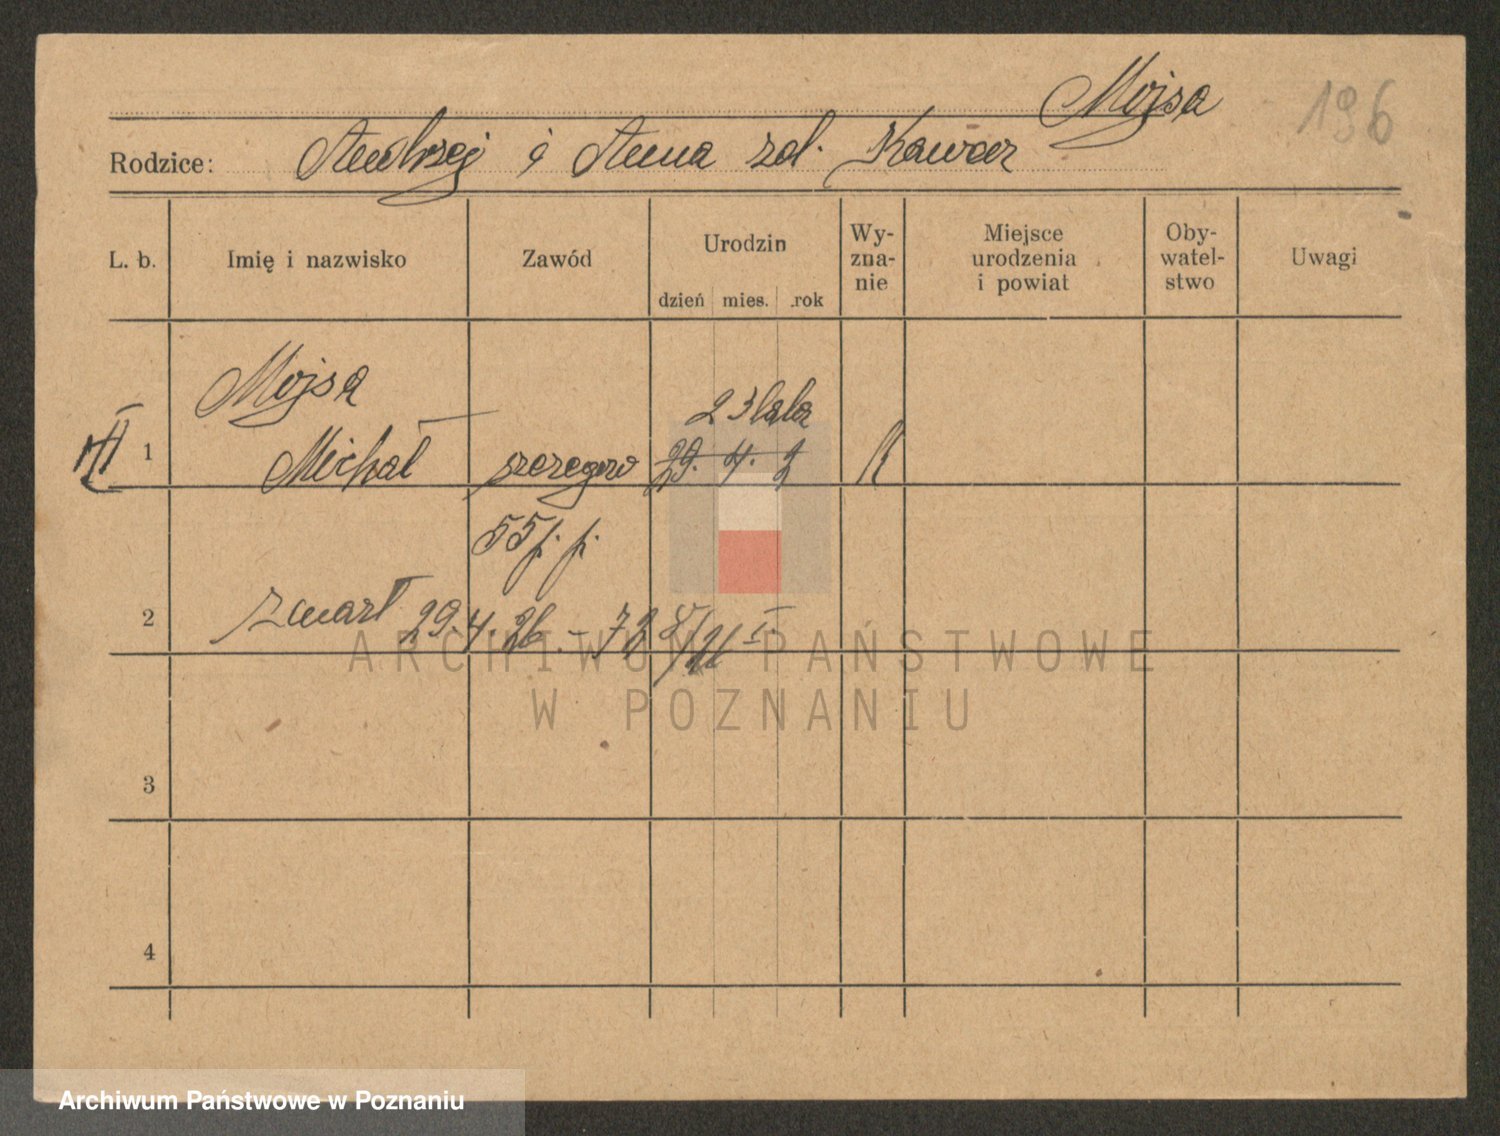 Mojsa
196
Rodzice: Andrzej i Anna zd. Kawcer
L. b. Imię i nazwisko Zawód Urodzin dzień mies. rok Wy-zna-nie Miejsce urodzenia i powiat Oby-watel-stwo Uwagi
Mojsa
23 lata
1 Michał szeregow 29. 4. 2 K
55 p. p.
2 zmarł 29. 4. 26. – 72
3
4
ARCHIWUM PAŃSTWOWE
W POZNANIU
Archiwum Państwowe w Poznaniu